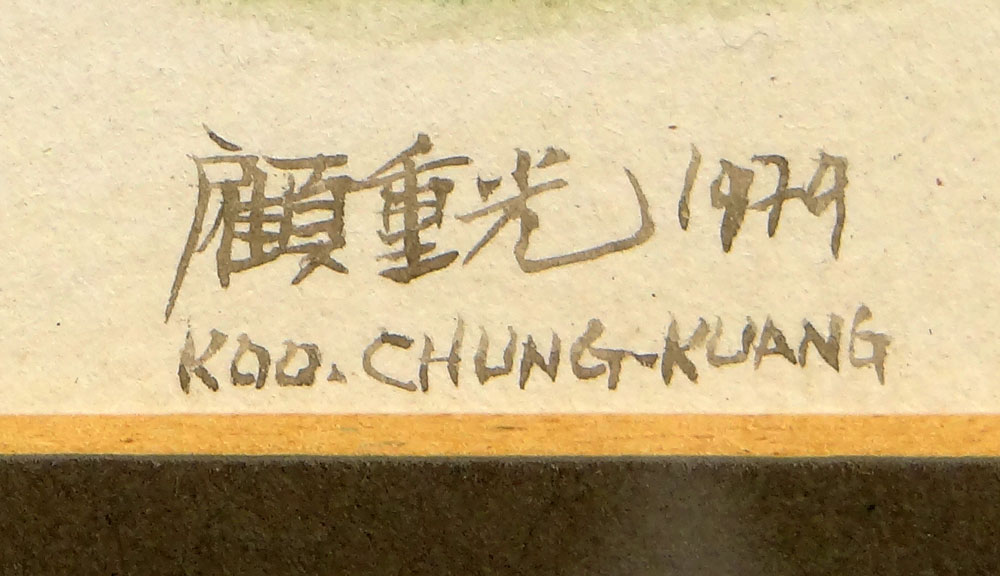 顧重光 1979
KOO. CHUNG-KUANG